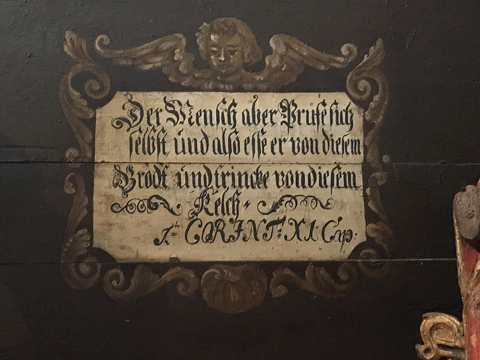 Der Mensch aber Prufe sich
selbst und also esse er von diesem
Brodt und trincke von diesem
Kelch
I. CORINT: XI: Cap.